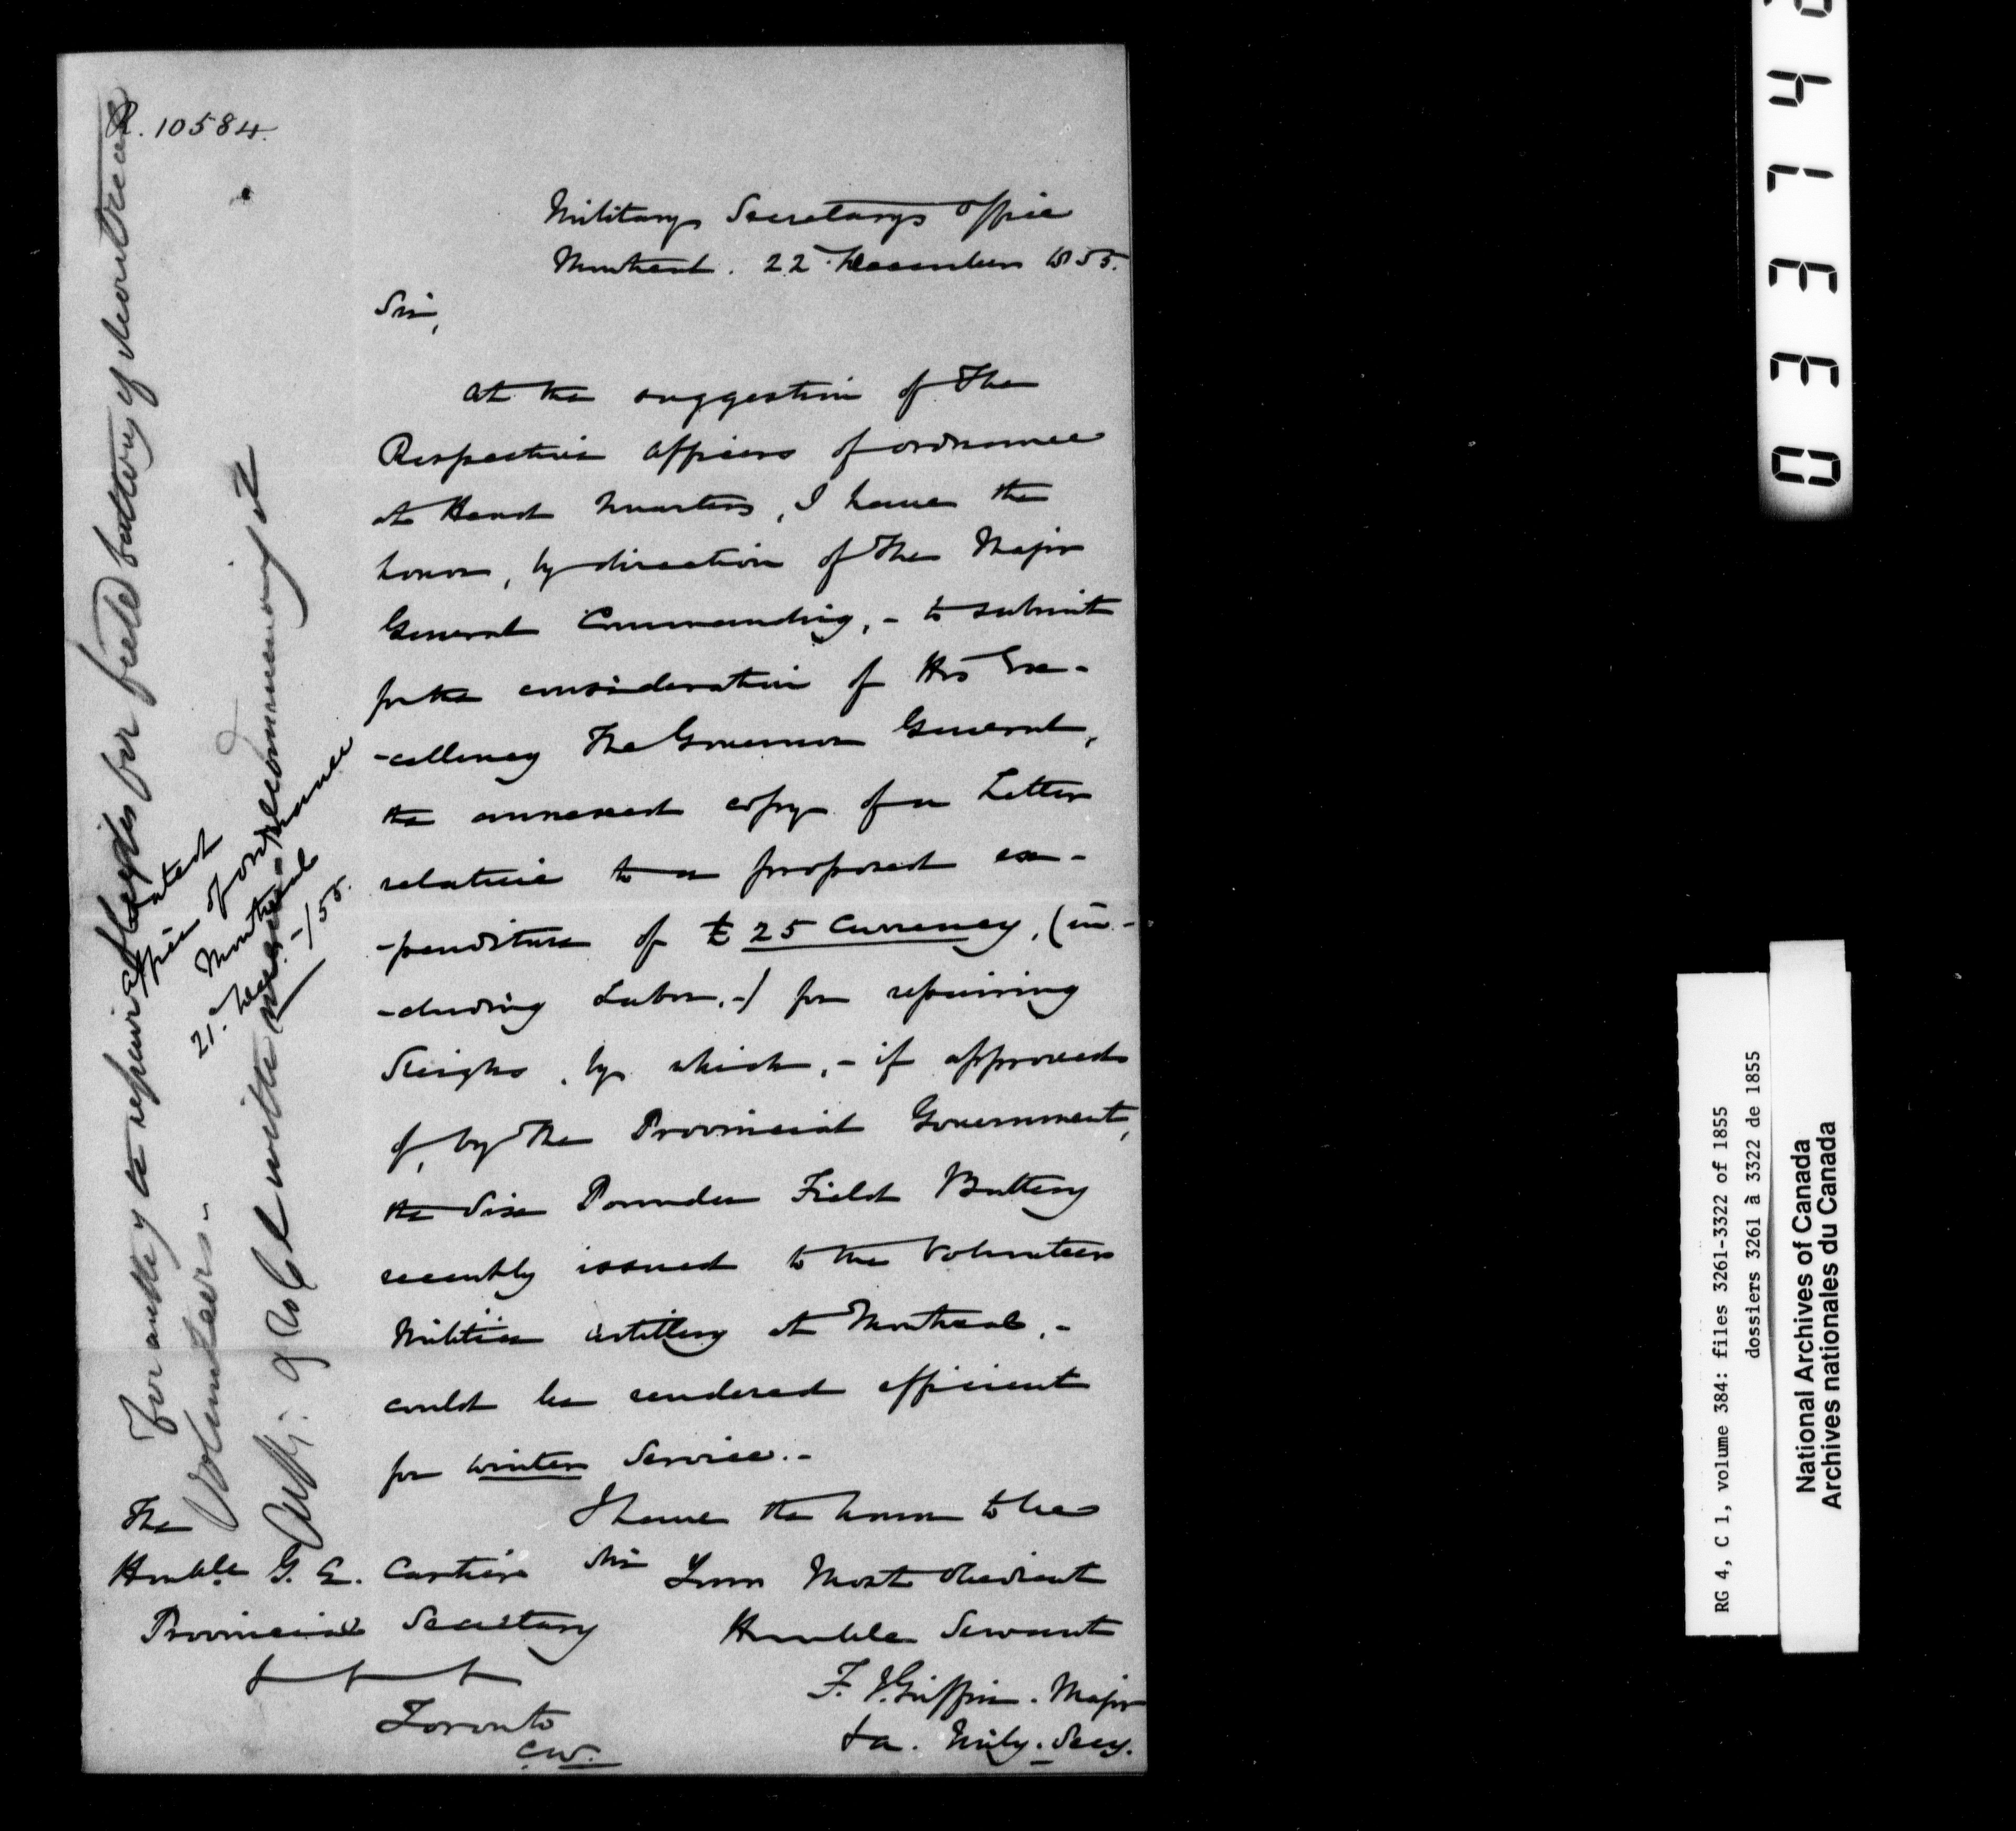 R. 10584.
Military Secretarys Office
Montreal. 22 December 1855.
Sir,
At the suggestion of The
Respective Officers of Ordnance
at Head Quarters, I have the
honor, by direction of The Major
General Commanding, - to submit
for the consideration of His Ex-
-cellency The Governor General,
the annexed copy of a Letter
relative to a proposed ex-
-penditure of £25 Currency, (in-
-cluding Labor,-) for repairing
Sleighs, by which, - if approved
of, by The Provincial Government,
the Six Pounder Field Battery
recently issued to the Volunteer
Militia Artillery at Montreal, -
could be rendered efficient
for winter Service. -
I have the honor to be
Sir Your Most Obedient
Humble Servant
F. Griffin. Major
Mily. Secy.
The
Honble G. E. Cartier
Provincial Secretary
Toronto
C.W.
Dated
Office of Ordnance
Montreal
21. Decr. -/55.
For authy to repair Sleighs for field battery of Montreal
Volunteers -
03374
RG 4, C 1, volume 384: files 3261-3322 of 1855
dossiers 3261 à 3322 de 1855
National Archives of Canada
Archives nationales du Canada